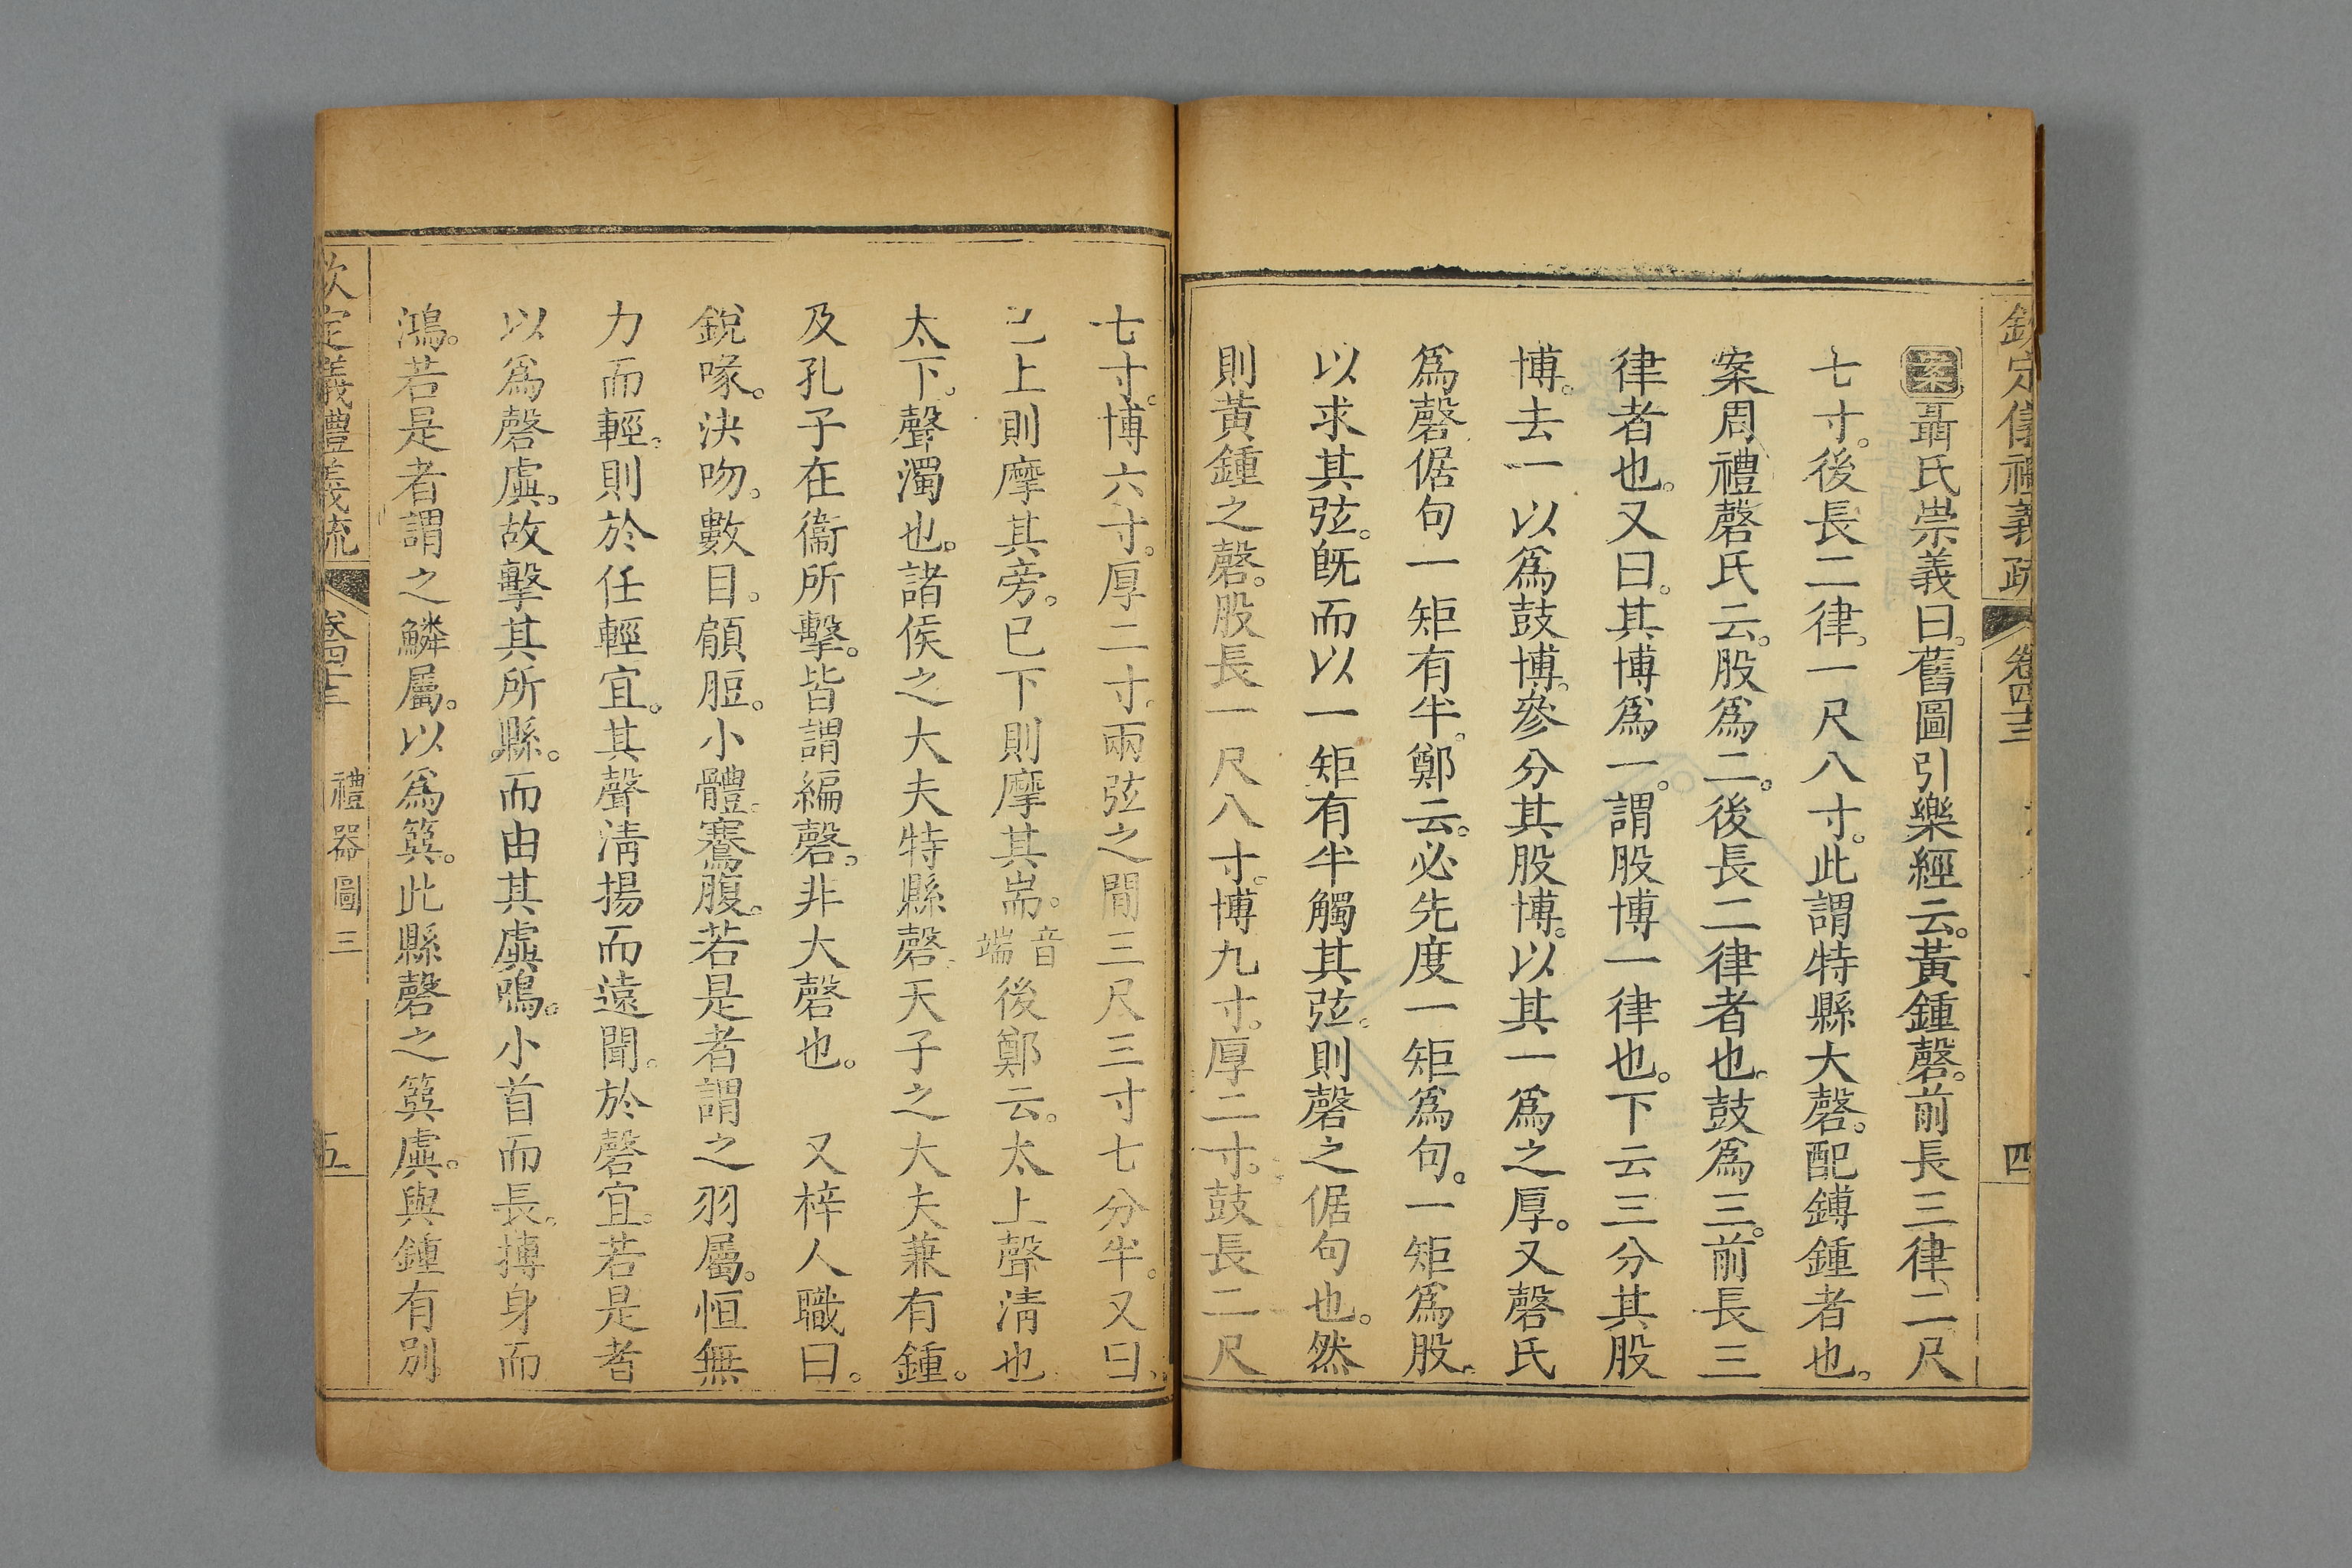 欽定儀禮義疏 卷四十三 四
案聶氏崇義曰。舊圖引樂經云。黃鍾磬。前長三律、二尺
七寸。後長二律。一尺八寸。此謂特縣大磬。配鎛鍾者也。
案周禮磬氏云。股爲二。後長二律者也。鼓爲三。前長三
律者也。又曰。其博爲一。謂股博一律也。下云三分其股
博。去一以爲鼓博。參分其股博。以其一爲之厚。又磬氏
爲磬倨句一矩有半。鄭云。必先度一矩爲句。一矩爲股。
以求其弦。旣而以一矩有半觸其弦。則磬之倨句也。然
則黃鍾之磬。股長一尺八寸。博九寸。厚二寸。鼓長二尺
七寸。博六寸。厚二寸。兩弦之閒三尺三寸七分半。又曰、
已上則摩其旁。已下則摩其耑。音端後鄭云。太上聲淸也
太下。聲濁也。諸侯之大夫特縣磬。天子之大夫兼有鍾。
及孔子在衞所擊。皆謂編磬。非大磬也。 又梓人職曰。
銳喙。決吻。數目。顅脰。小體。騫腹。若是者謂之羽屬。恒無
力而輕。則於任輕宜。其聲淸揚而遠聞。於磬宜。若是者
以爲磬虡。故擊其所縣。而由其虡鳴。小首而長。摶身而
鴻。若是者謂之鱗屬。以爲簨。此縣磬之簨虡。與鍾有別
欽定儀禮義疏 卷四十三 禮器圖三 五